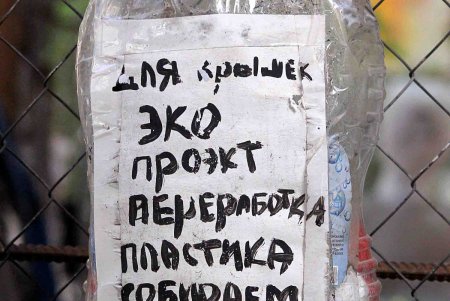 для крышек
эко
проэкт
переработка
пластика
собираем